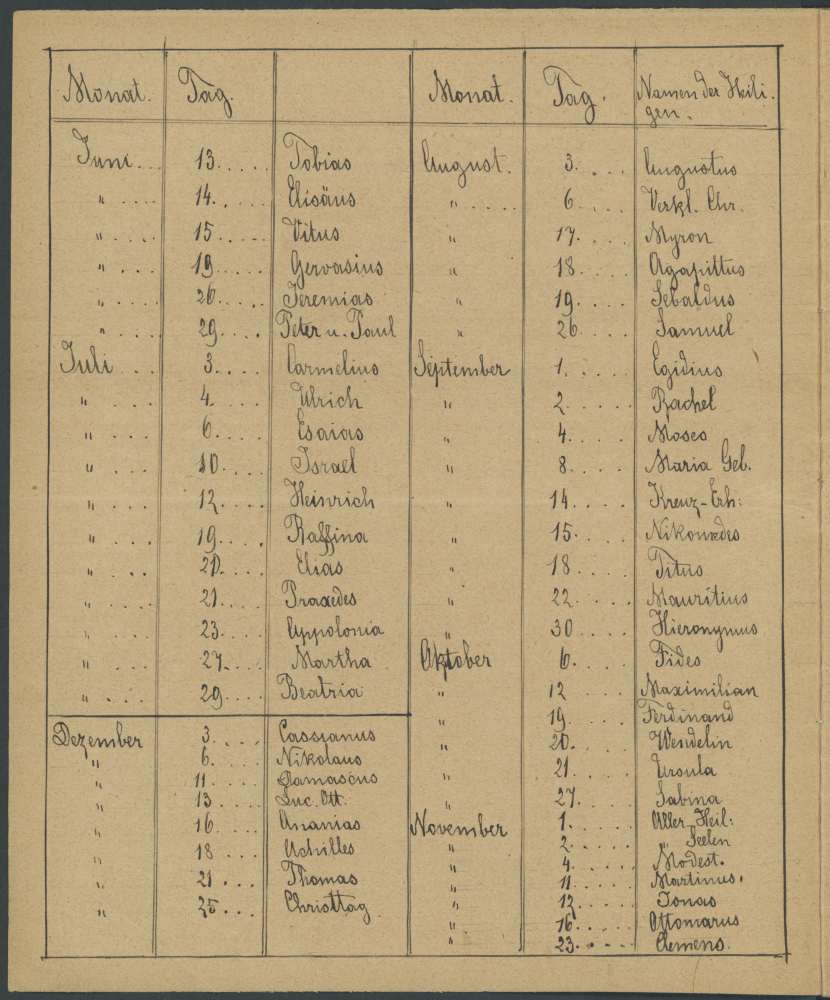 Monat. Tag.
Juni... 13..... Tobias
" .... 14..... Elisäus
" .... 15..... Vitus
" .... 19..... Gervasius
" .... 26..... Jeremias
" .... 29.... Peter u. Paul
Juli ... 3.... Carmelius
" .... 4.... Ulrich
" ... 6.... Esaias
" ... 10.... Israel
" ... 12.... Heinrich
" ... 19.... Raffina
" ... 20.... Elias
" .... 21.... Praxedes
" ... 23.... Appolonia
" ... 27.... Martha
" .... 29.... Beatria
Dezember 3.... Cassianus
" 6.... Nikolaus
" 11.... Damascus
" 13.... Luc. Ott.
" 16.... Ananias
" 18... Achilles
" 21... Thomas
" 25... Christtag
Monat. Tag. Namen der Heili-
gen.
August. 3.... Augustus
" ..... 6.... Verkl. Chr.
" 17.... Myron
" 18.... Agapittus
" 19.... Sebaldus
" 26.... Samuel
September 1..... Egidius
" 2..... Rachel
" 4..... Moses
" 8..... Maria Geb.
" 14.... Kreuz-Erh:
" 15.... Nikomedes
" 18.... Titus
" 22.... Mauritius
" 30.... Hieronymus
Oktober 6.... Fides
" 12.... Maximilian
19.... Ferdinand
" 20.... Wendelin
" 21.... Ursula
" 27.... Sabina
November 1..... Aller Heil:
" 2..... " Seelen
" 4..... Modest.
" 11..... Martinus.
" 12..... Jonas
" 16..... Ottomarus
" 23..... Clemens.